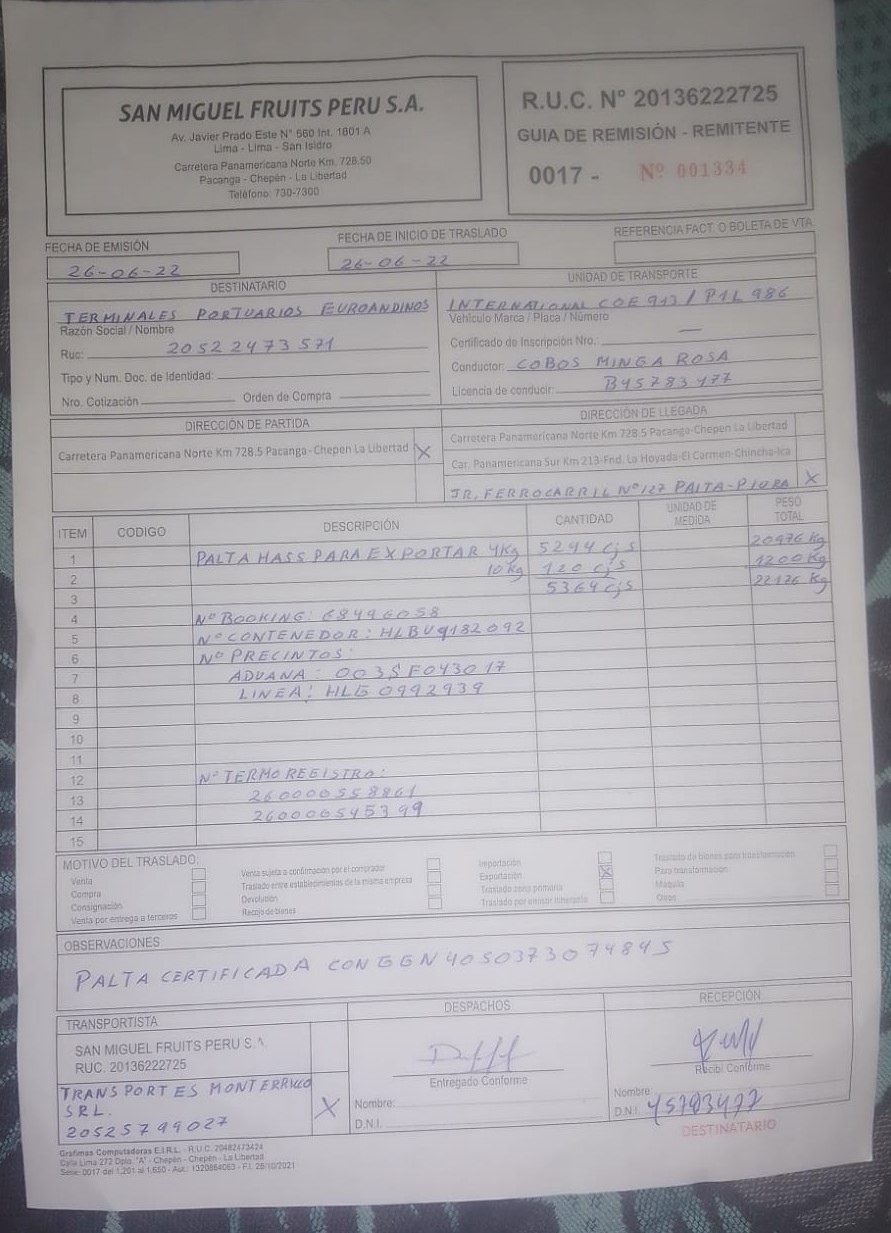 SAN MIGUEL FRUITS PERU S.A.
Av. Javier Prado Este N° 560 Int. 1801 A
Lima - Lima - San Isidro
Carretera Panamericana Norte Km. 728.50
Pacanga - Chepén - La Libertad
Teléfono: 730-7300
R.U.C. N° 20136222725
GUIA DE REMISIÓN - REMITENTE
0017 - Nº 001334
FECHA DE EMISIÓN
26-06-22
FECHA DE INICIO DE TRASLADO
26-06-22
REFERENCIA FACT. O BOLETA DE VTA.
DESTINATARIO
TERMINALES PORTUARIOS EUROANDINOS
Razón Social / Nombre
Ruc: 20522473571
Tipo y Num. Doc. de Identidad:
Nro. Cotización Orden de Compra
UNIDAD DE TRANSPORTE
INTERNATIONAL COE 913 / P1L 986
Vehículo Marca / Placa / Número
Certificado de Inscripción Nro. —
Conductor: COBOS MINGA ROSA
Licencia de conducir: B45783477
DIRECCIÓN DE PARTIDA
Carretera Panamericana Norte Km 728.5 Pacanga-Chepen La Libertad X
DIRECCIÓN DE LLEGADA
Carretera Panamericana Norte Km 728.5 Pacanga-Chepen La Libertad
Car. Panamericana Sur Km 213-Fnd. La Hoyada-El Carmen-Chincha-Ica
JR. FERROCARRIL Nº 127 PAITA-PIURA X
ITEM CODIGO DESCRIPCIÓN CANTIDAD UNIDAD DE MEDIDA PESO TOTAL
1 PALTA HASS PARA EXPORTAR 4Kg 5244 cjs 20976 Kg
2 10 Kg 120 cjs 1200 Kg
3 5364 cjs 22176 Kg
4 Nº BOOKING: 68496058
5 Nº CONTENEDOR: HLBU9182092
6 Nº PRECINTOS:
7 ADUANA: 003SF043017
8 LINEA: HLG 0992939
9
10
11
12 Nº TERMO REGISTRO:
13 260000558861
14 260000545399
15
MOTIVO DEL TRASLADO:
Venta
Compra
Consignación
Venta por entrega a terceros
Venta sujeta a confirmación por el comprador
Traslado entre establecimientos de la misma empresa
Devolución
Recojo de bienes
Importación
Exportación X
Traslado zona primaria
Traslado por emisor itinerante
Traslado de bienes para transformación
Para transformación
Maquila
Otros
OBSERVACIONES
PALTA CERTIFICADA CON GGN 4050373074845
TRANSPORTISTA
SAN MIGUEL FRUITS PERU S.A.
RUC. 20136222725
TRANSPORTES MONTERRICO
SRL. X
20525799027
DESPACHOS
Entregado Conforme
Nombre:
D.N.I.
RECEPCIÓN
Recibí Conforme
Nombre:
D.N.I. 45783477
DESTINATARIO
Grafimas Computadoras E.I.R.L. - R.U.C. 20482473424
Calle Lima 272 Dpto. "A" - Chepén - Chepén - La Libertad
Serie: 0017 del 1,201 al 1,550 - Aut.: 1320884063 - F.I. 28/10/2021